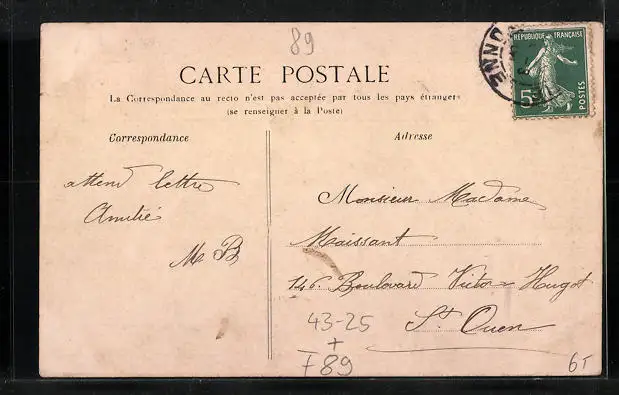 89
RÉPUBLIQUE FRANÇAISE
5c
POSTES
CARTE POSTALE
La Correspondance au recto n'est pas acceptée par tous les pays étrangers
(se renseigner à la Poste)
Correspondance
Adresse
attend lettre
Amitié
M B
Monsieur Madame
Maissant
146 Boulevard Victor Hugot
St Ouen
43-25
+
F89
6T